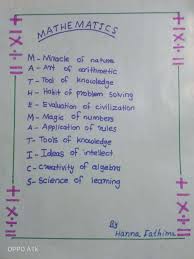 MATHEMATICS
M - Miracle of nature
A - Art of arithmetic
T - Tool of knowledge
H - Habit of problem solving
E - Evaluation of civilization
M - Magic of numbers
A - Application of rules
T - Tools of knowledge
I - Ideas of intellect
C - Creativity of algebra
S - Science of learning
By
Hanna Fathima
OPPO A7K